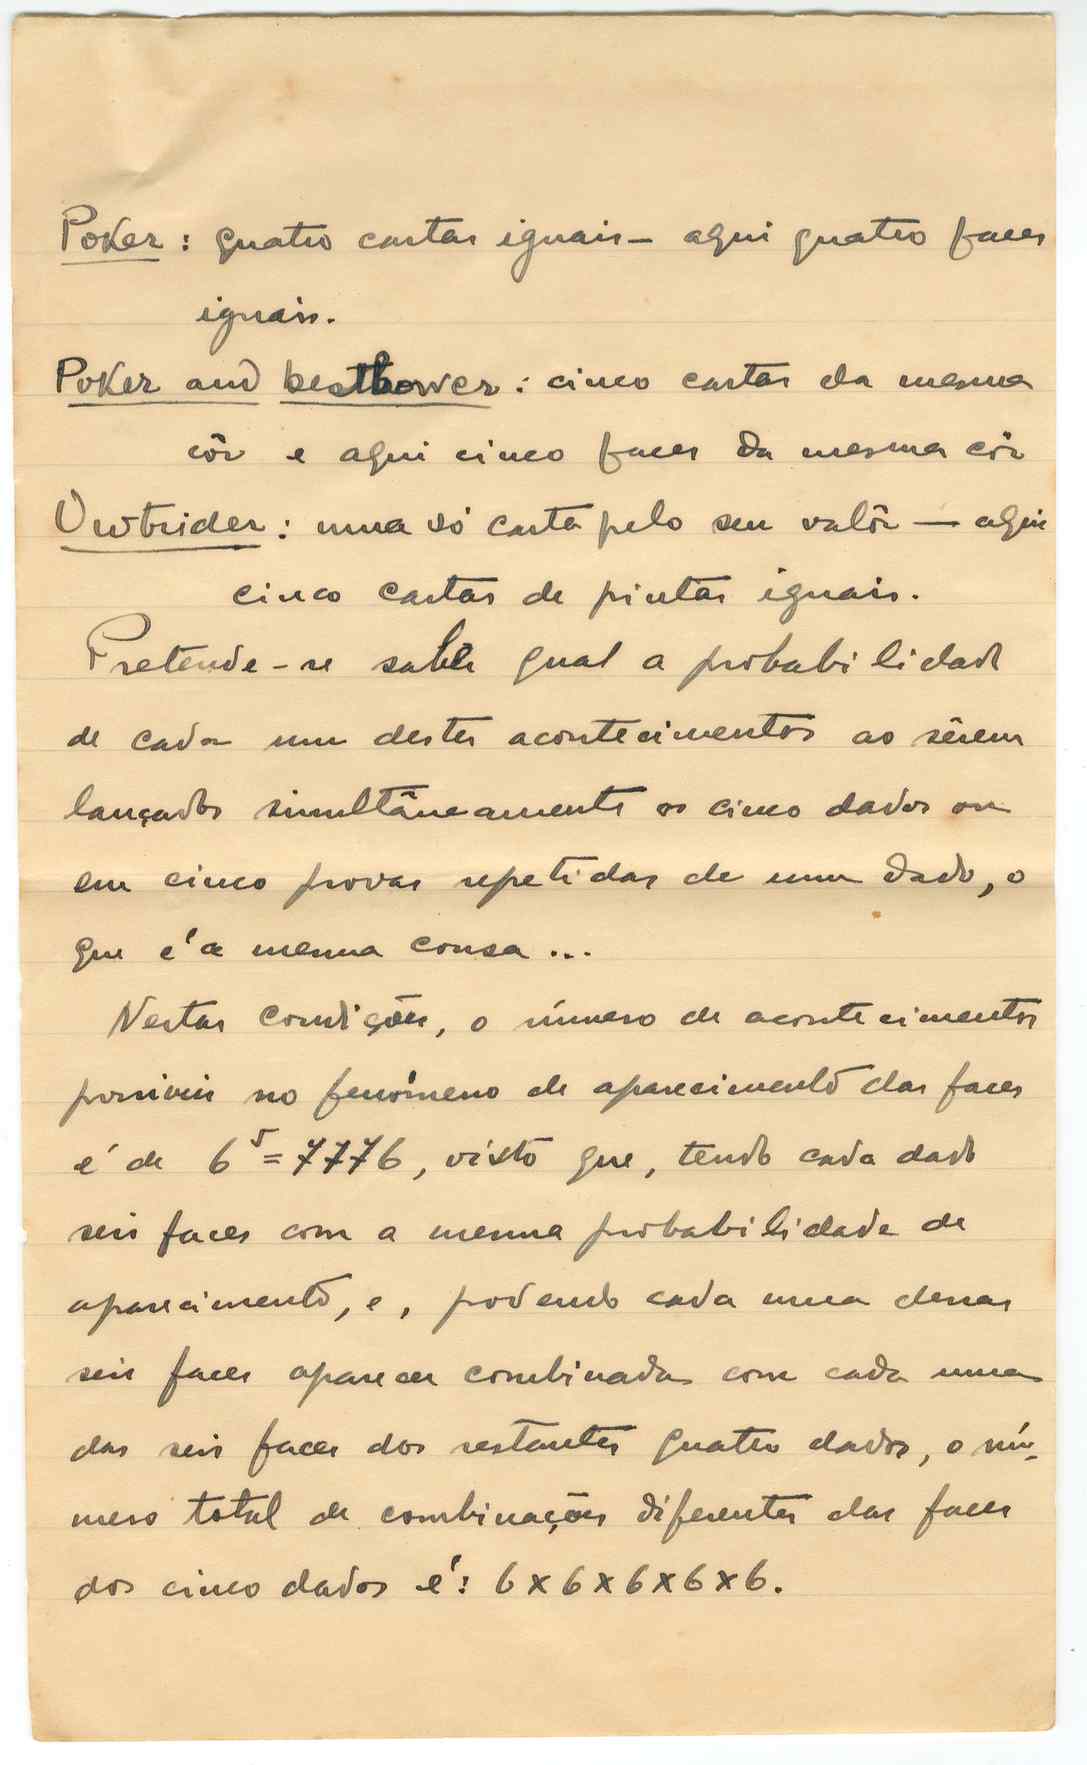 Poker: quatro cartas iguais — aqui quatro faces
iguais.
Poker and bestbower: cinco cartas da mesma
côr e aqui cinco faces da mesma côr
Owtsider: uma só carta pelo seu valôr — aqui
cinco cartas de pintas iguais.
Pretende-se saber qual a probabilidade
de cada um destes acontecimentos ao sêrem
lançados simultâneamente os cinco dados ou
em cinco provas repetidas de um dado, o
que é a mesma cousa ...
Nestas condições, o número de acontecimentos
possiveis no fenómeno de aparecimento das faces
é de 6⁵ = 7776, visto que, tendo cada dado
seis faces com a mesma probabilidade de
aparecimento, e, podendo cada uma dessas
seis faces aparecer combinada com cada uma
das seis faces dos restantes quatro dados, o nú-
mero total de combinações diferentes das faces
dos cinco dados é: 6 x 6 x 6 x 6 x 6.